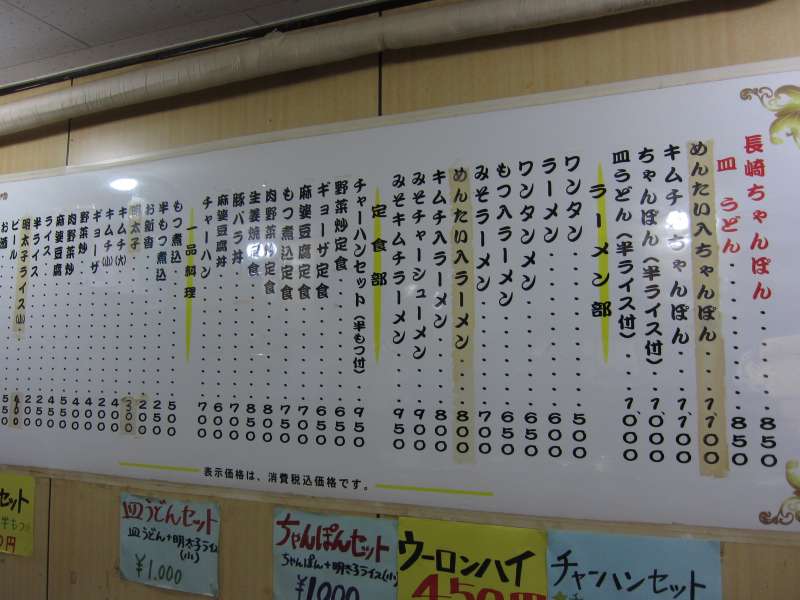 長崎ちゃんぽん.........850
皿うどん.........850
めんたい入ちゃんぽん...1,100
キムチ入ちゃんぽん...1,100
ちゃんぽん(半ライス付)...1,000
皿うどん(半ライス付)...1,000
ラーメン部
ワンタン.........500
ラーメン.........600
ワンタンメン.........650
もつ入ラーメン.........650
みそラーメン.........700
めんたい入ラーメン.........800
キムチ入ラーメン.........800
みそチャーシューメン.........900
みそキムチラーメン.........950
定食部
チャーハンセット(半もつ付)...950
野菜炒定食.........650
ギョーザ定食.........650
麻婆豆腐定食.........700
もつ煮込定食.........750
肉野菜炒定食.........800
生姜焼定食.........850
豚バラ丼.........700
麻婆豆腐丼.........600
チャーハン.........700
一品料理
もつ煮込.........500
半もつ煮込.........250
お新香.........250
明太子.........300
キムチ(大).........400
キムチ(小).........200
ギョーザ.........400
野菜炒.........400
肉野菜炒.........500
麻婆豆腐.........450
ライス.........200
半ライス
明太子ライス(小)...400
ビール.........550
お酒
表示価格は、消費税込価格です。
セット
半もつ
円
皿うどんセット
皿うどん+明太子ライス(小)
¥1.000
ちゃんぽんセット
ちゃんぽん+明太子ライス(小)
¥1000
ウーロンハイ
450円
チャーハンセット